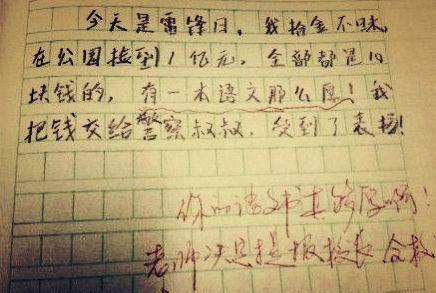 今天是雷锋日，我拾金不昧，
在公园捡到1亿元，全部都是10
块钱的，有一本语文那么厚！我
把钱交给警察叔叔，受到了表扬！
你的语文书真够厚啊！
老师决定提报校长 合校